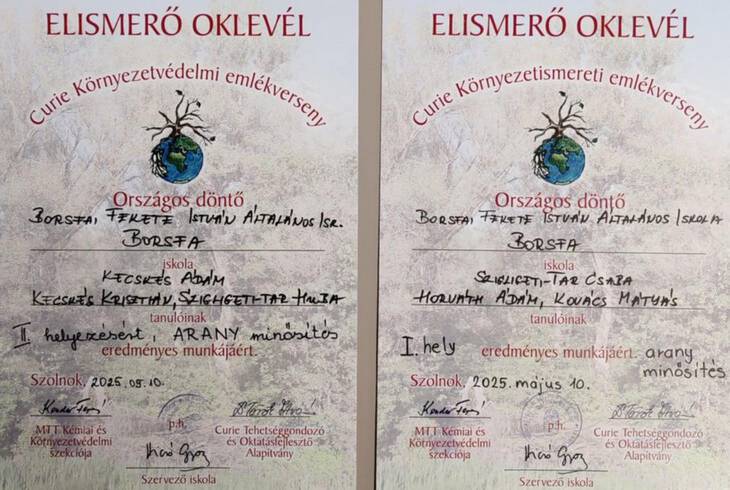 ELISMERŐ OKLEVÉL
Curie Környezetvédelmi emlékverseny
Országos döntő
BORSFAI FEKETE ISTVÁN ÁLTALÁNOS ISK.
BORSFA
iskola
KECSKÉS ÁDÁM
KECSKÉS KRISZTIÁN, SZIGLIGETI-TAR HUBA
tanulóinak
II helyezésért, ARANY minősítés
eredményes munkájáért.
Szolnok, 2025.05.10.
p.h.
MTT Kémiai és
Környezetvédelmi
szekciója
Curie Tehetséggondozó
és Oktatásfejlesztő
Alapítvány
Szervező iskola
ELISMERŐ OKLEVÉL
Curie Környezetismereti emlékverseny
Országos döntő
BORSFAI FEKETE ISTVÁN ÁLTALÁNOS ISKOLA
BORSFA
iskola
SZIGLIGETI-TAR CSABA
HORVÁTH ÁDÁM, KOVÁCS MÁTYÁS
tanulóinak
I. hely eredményes munkájáért. arany
minősítés
Szolnok, 2025. május 10.
p.h.
MTT Kémiai és
Környezetvédelmi
szekciója
Curie Tehetséggondozó
és Oktatásfejlesztő
Alapítvány
Szervező iskola